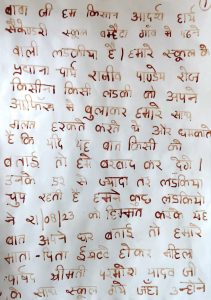 बाबा जी हम किसान आदर्श हायर
सेकेण्डरी स्कूल गाँव मे पढने
वाली लडकियां है। हमारे स्कूल के
प्रधानाचार्य राजीव पाण्डेय रोज
किसी न किसी लडकी को अपने
आफिस मे बुलाकर हमारे साथ
गलत हरकते करते थे और धमकाते
है कि यदि यह बात किसी को
बताई तो हम बरबाद कर देंगे।
उनके डर से ज्यादा तर लडकिया
चुप रहती है हमने कुछ लडकियो
ने 21/08/23 को हिम्मत करके यह
बात अपने घर बताई तो हमारे
माता-पिता इकट्टे होकर महिला
पार्षद श्रीमती यादव जी
के साथ स्कूल गये जहाँ उन्होने